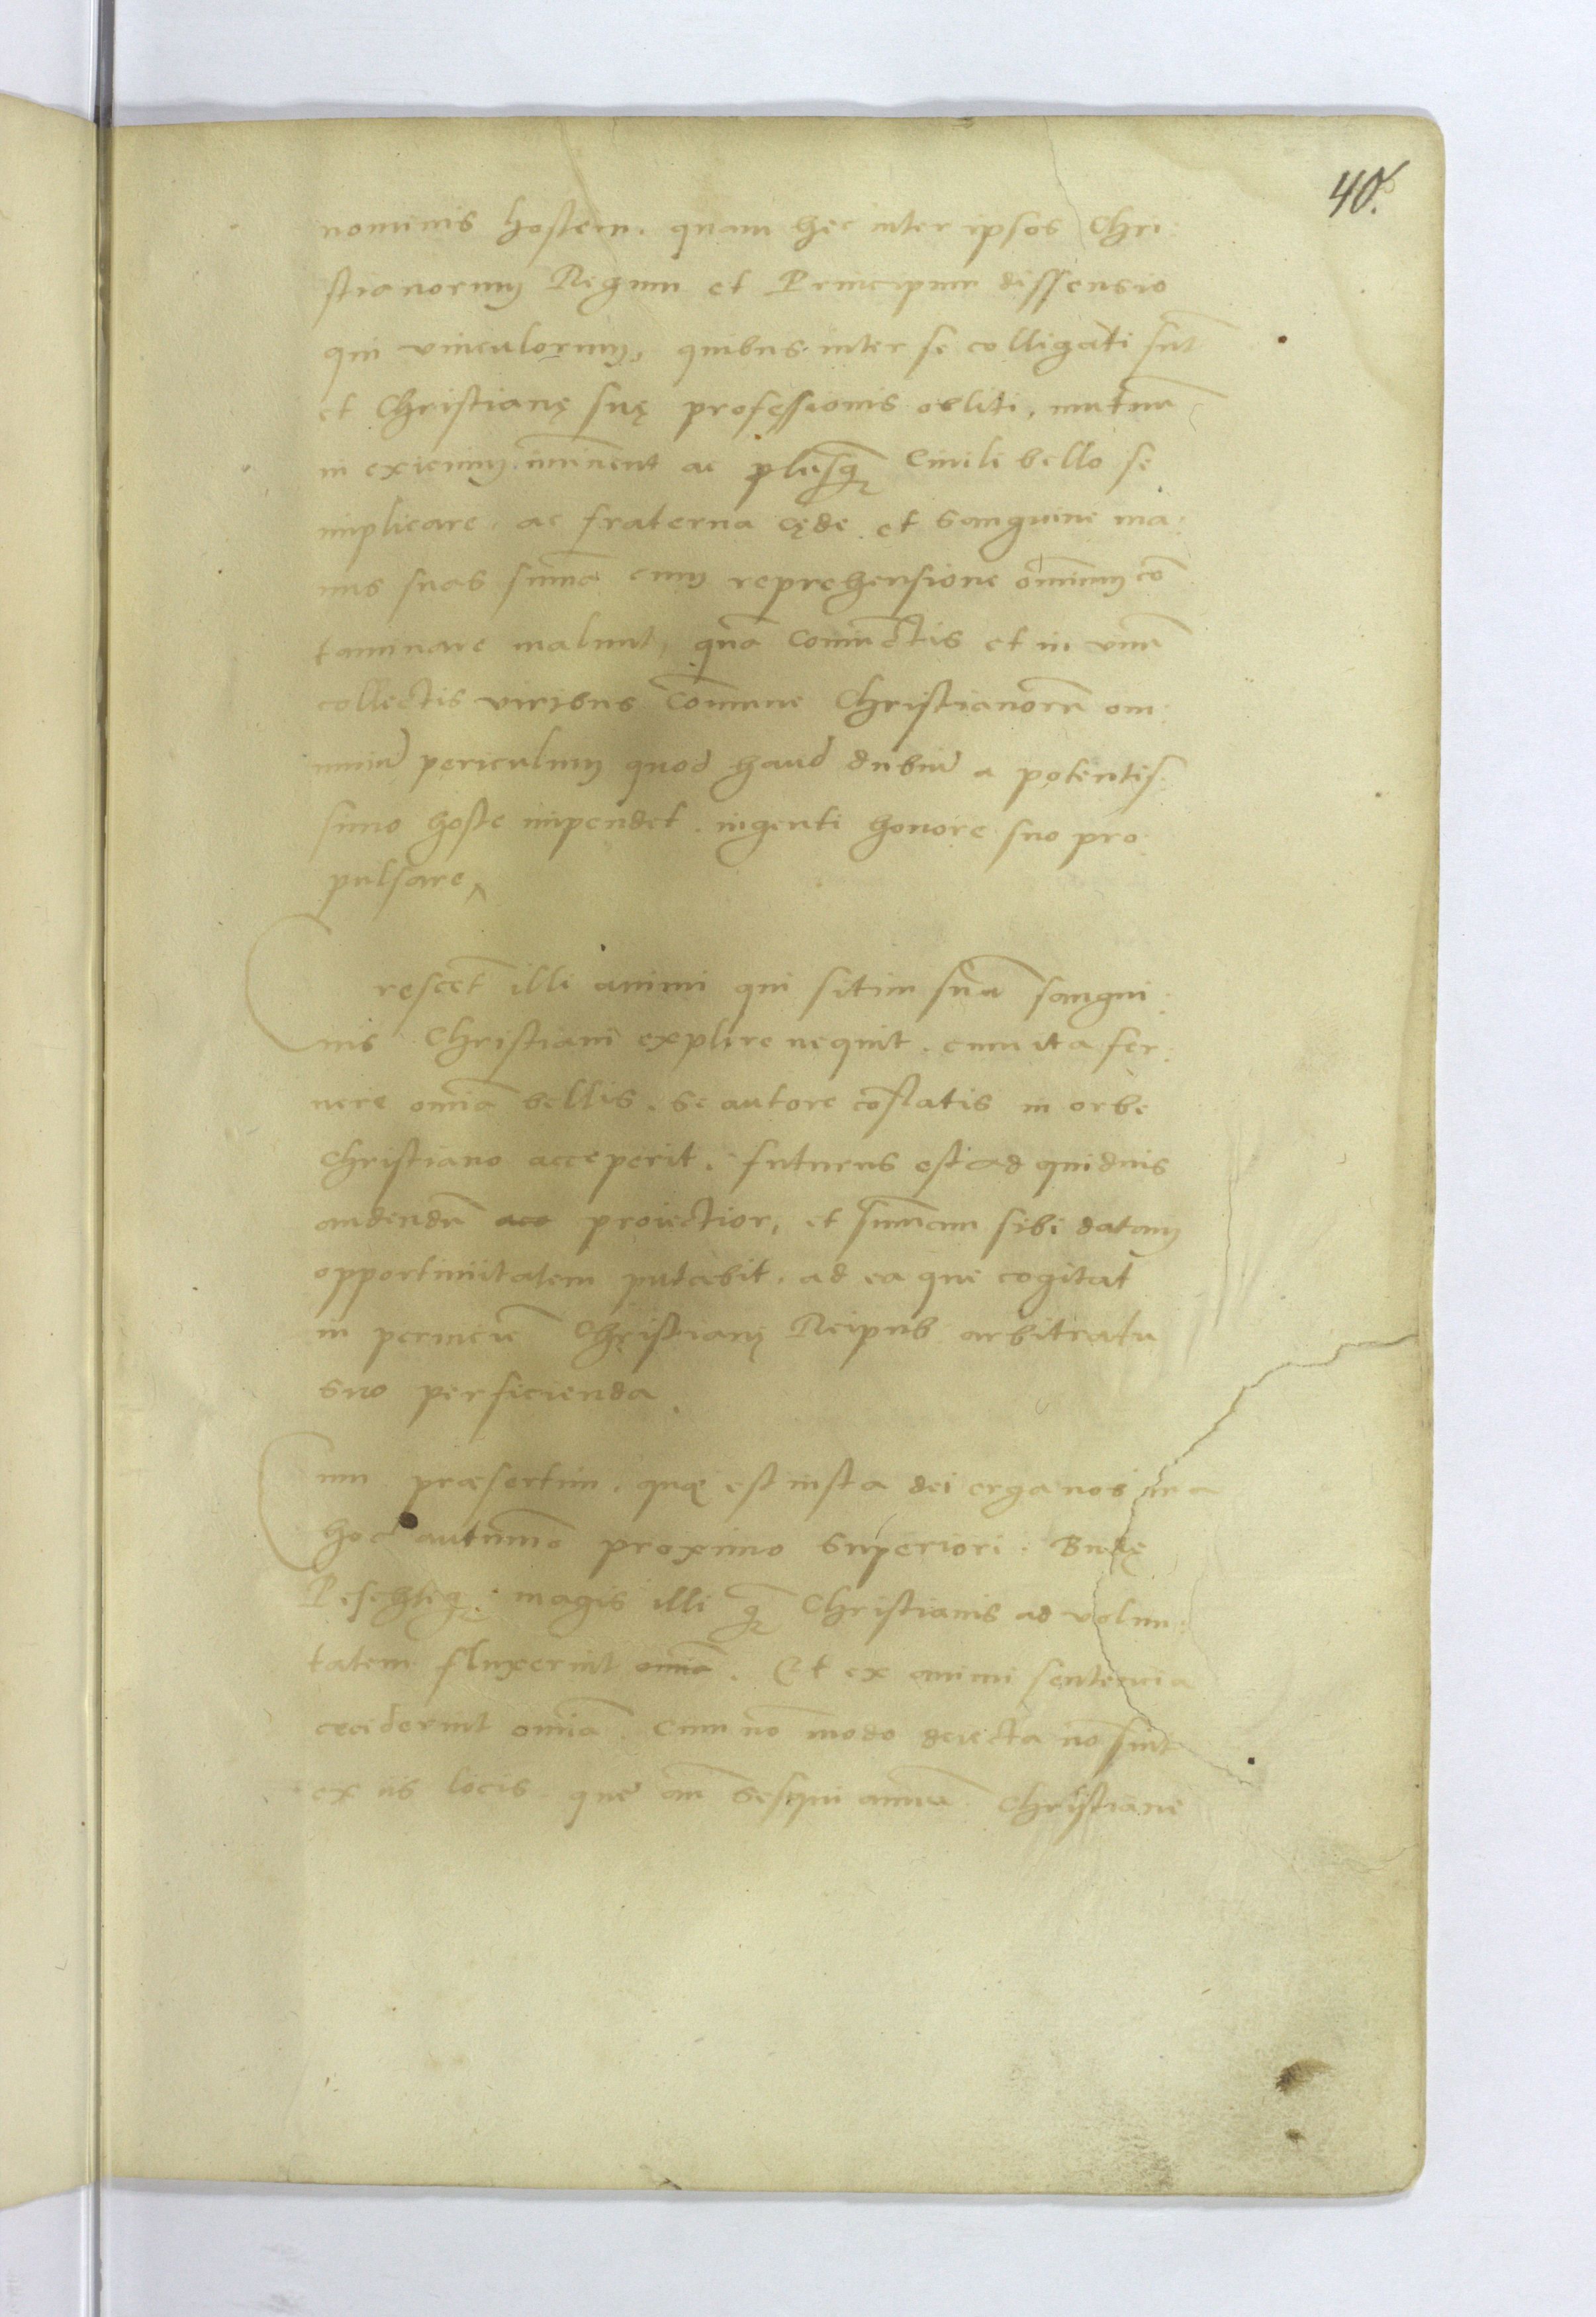 40.
nominis hostem. quam hec inter ipsos Chri:
stianorum Regum et Principum dissensio
qui vinculorum, quibus inter se colligati sūt
et Christianę suę professionis obliti, mutuū
in exicium iminent ac plusq̃ Ciuili bello se
implicare, ac fraterna cęde et sanguine ma:
nus suas suma cum reprehensione omnium cō
taminare malunt, quā coniunctis et in vnū
collectis viribus comune Christianorū om:
nium periculum quod haud dubiū a potentis:
simo hoste impendet. ingenti honore suo pro:
pulsare,
Crescēt illi animi qui sitim suā sangui:
nis Christiani explere nequit. cum ita fer:
uere omīa bellis. se autore cōflatis in orbe
Christiano acceperit. futurus est ad quiduis
audendū proiectior, et sumam sibi datam
opportunitatem putabit. ad ea que cogitat
in perniciē Christianę Reipub arbitratu
suo perficienda.
Cum præsertim, quæ est iusta dei erga nos ira
hoc autumno proximo superiori. Budę
Peschtęq; magis illi q̃ Christianis ad volun:
tatem fluxerint omīa. Et ex animi sentencia
ceciderint omīa. Cum nō modo deiecta nō sint
ex iis locis. que an̄ sesqui annū Christiane